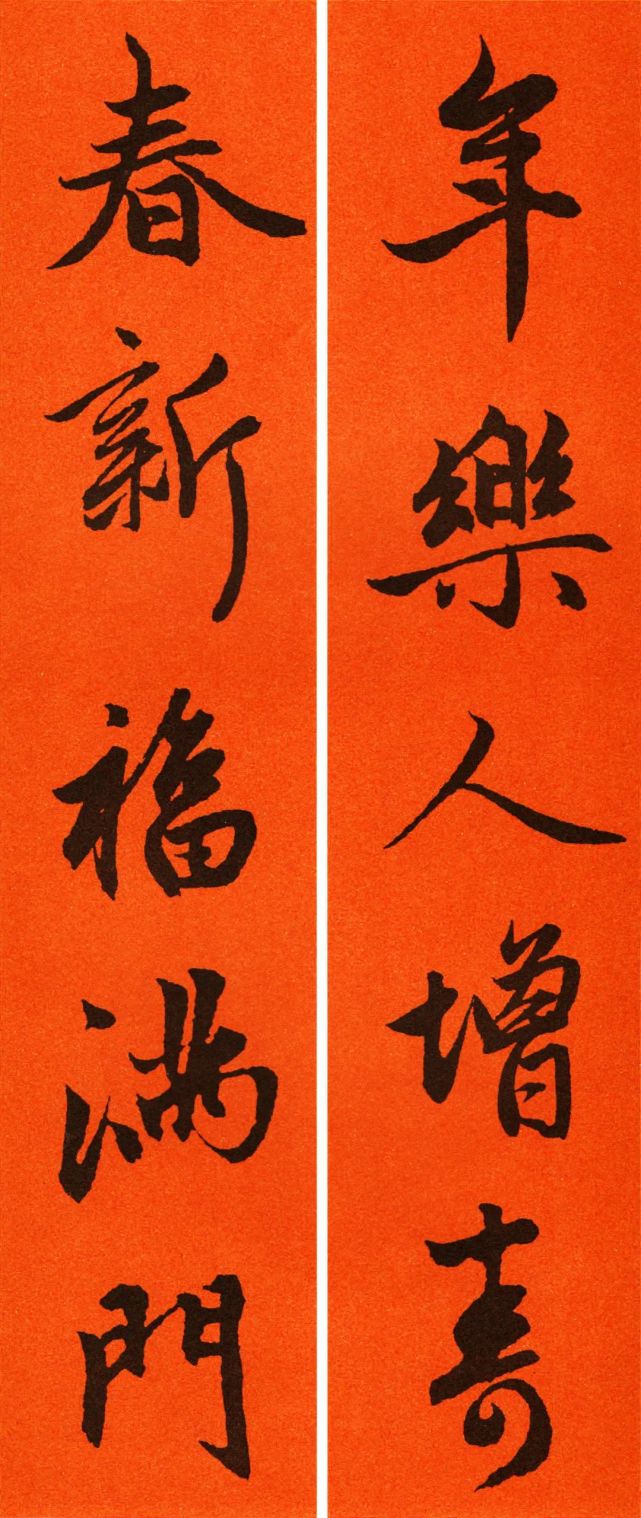 年樂人增壽
春新福满門